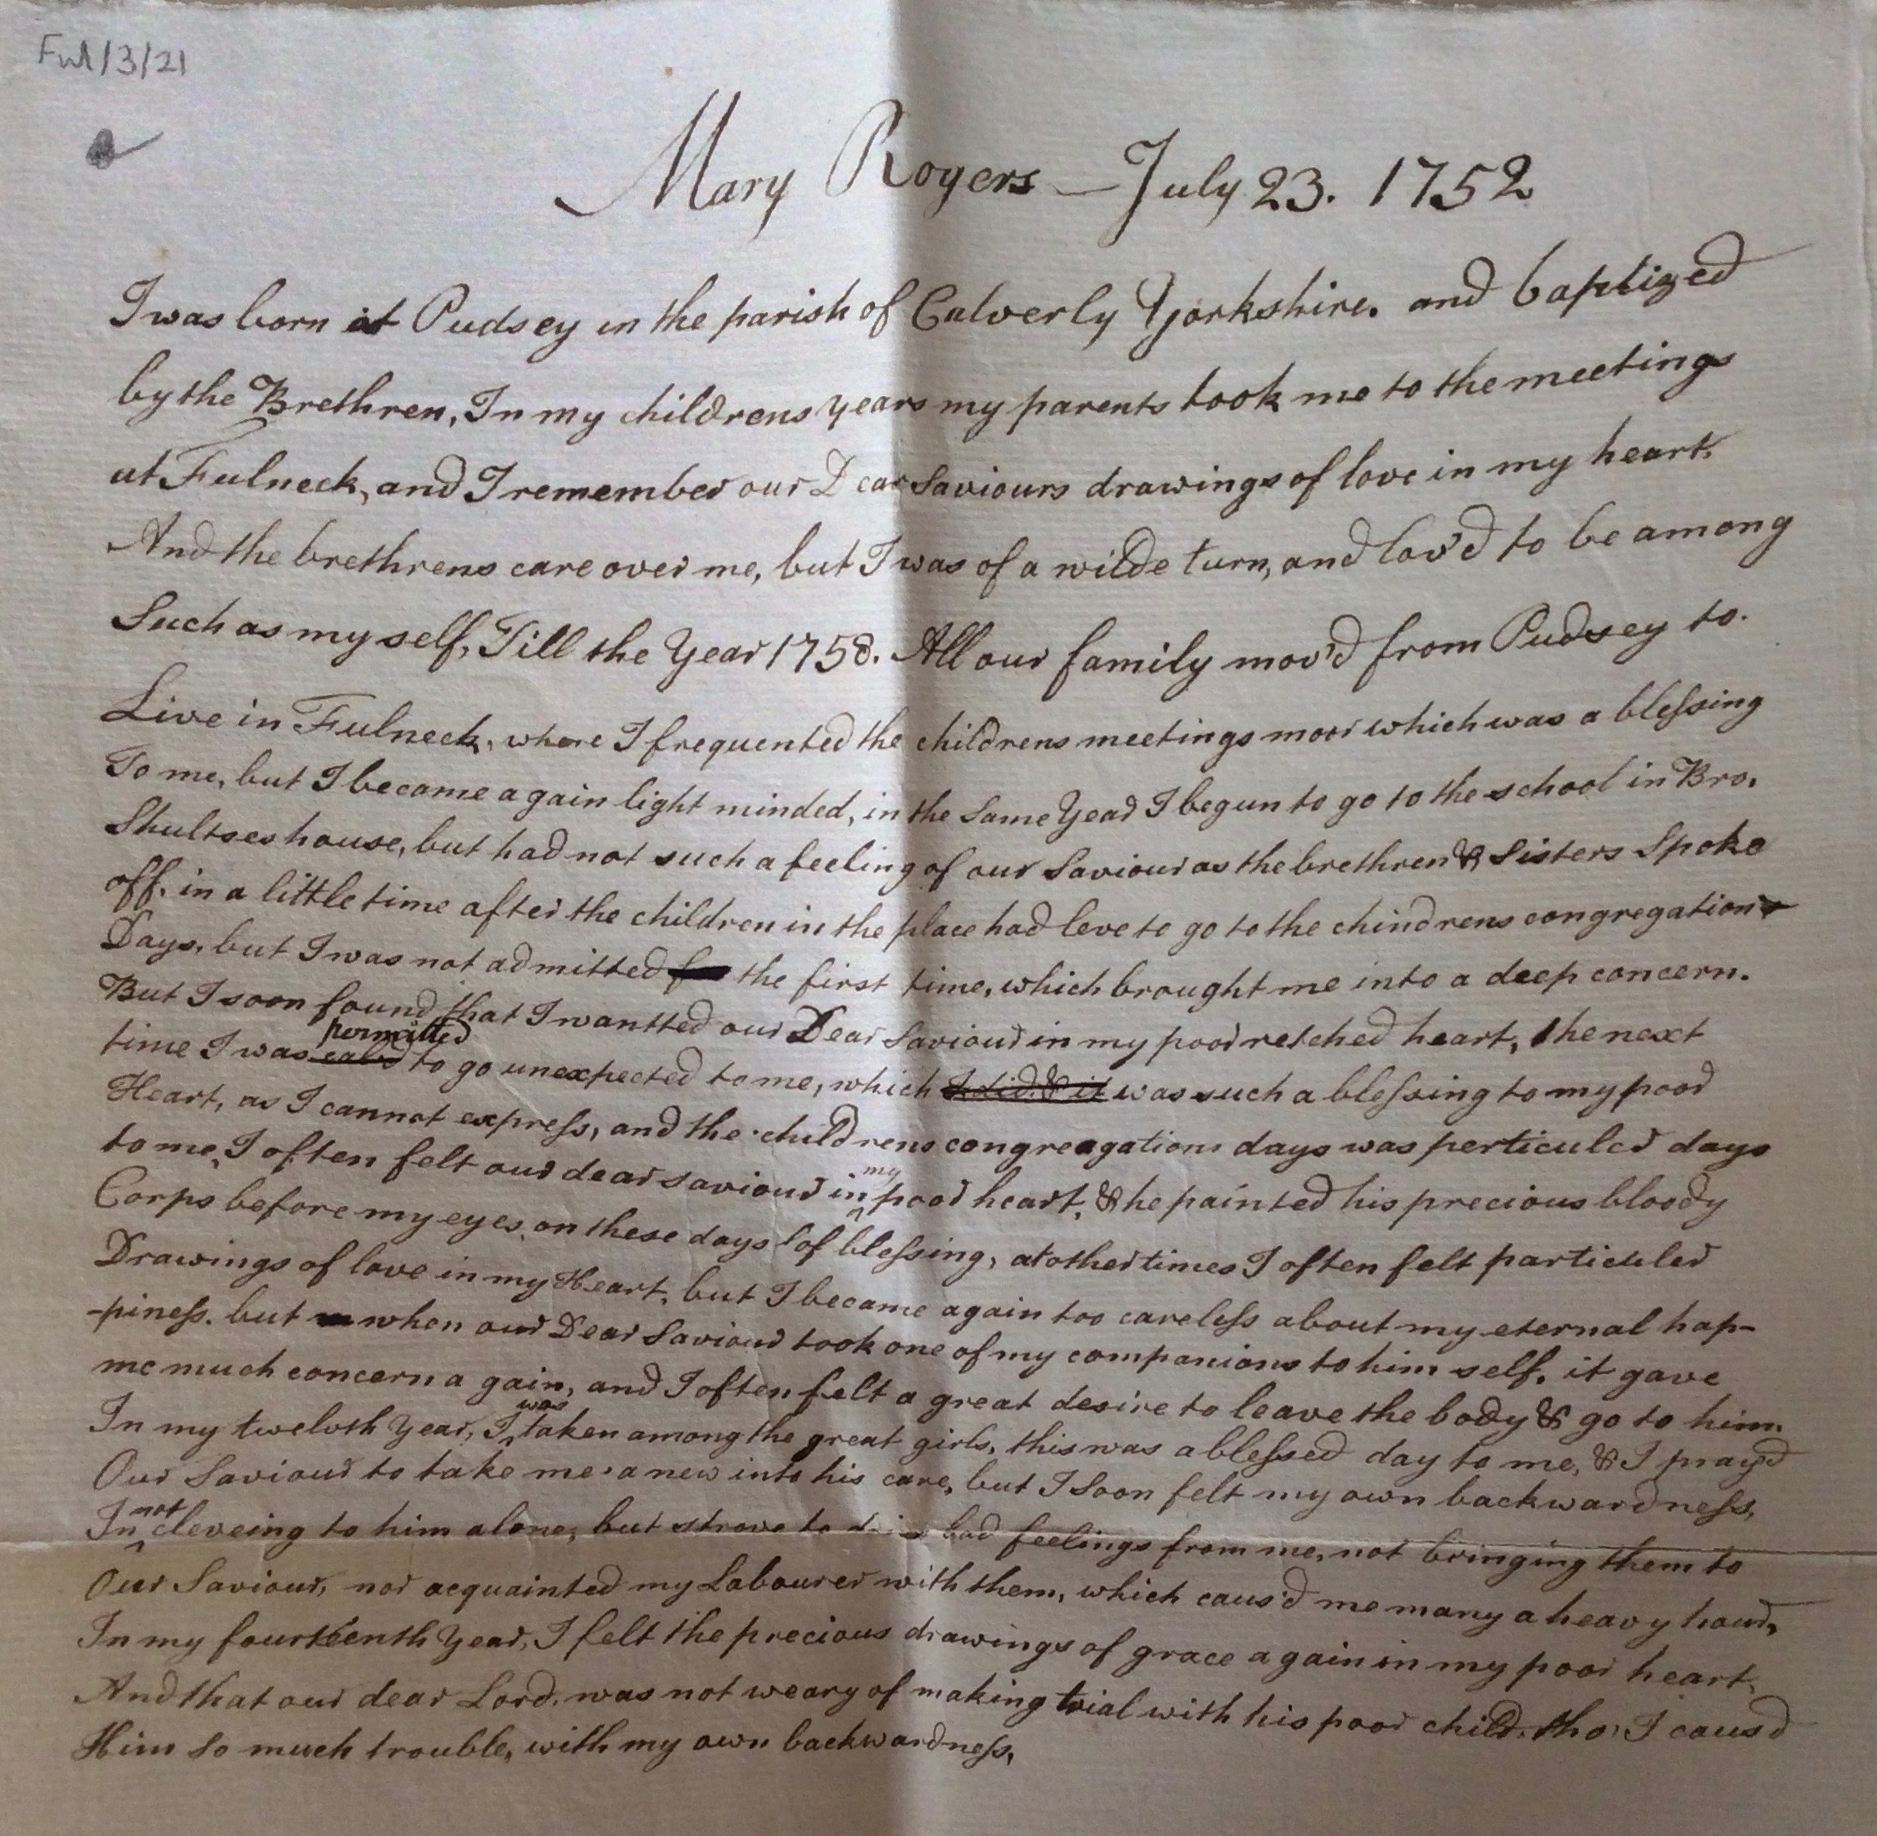 Ful/3/21
Mary Rogers — July 23. 1752
I was born at Pudsey in the parish of Calverly Yorkshire. and baptized
by the Brethren, In my childrens years my parents took me to the meetings
at Fulneck, and I remember our Dear Saviours drawings of love in my heart.
And the brethrens care over me, but I was of a wilde turn, and lov'd to be among
Such as my self, Till the Year 1758. All our family mov'd from Pudsey to.
Live in Fulneck, where I frequented the childrens meetings moor which was a blessing
To me, but I became again light minded, in the Same Year I begun to go to the school in Bro.
Shultses house, but had not such a feeling of our Saviour as the brethren & Sisters Spoke
off. in a little time after the children in the place had leve to go to the chindrens congregation
Days, but I was not admitted the first time, which brought me into a deep concern.
But I soon found that I wantted our Dear Saviour in my poor retched heart, the next
time I was permitted to go unexpected to me, which I did & it was such a blessing to my poor
Heart, as I cannot express, and the childrens congreagations days was perticuler days
to me, I often felt our dear saviour in my poor heart, & he painted his precious bloody
Corps before my eyes, on these days of blessing, at other times I often felt particuler
Drawings of love in my Heart, but I became again too careless about my eternal hap-
-piness. but when our Dear Saviour took one of my companions to him self, it gave
me much concern a gain, and I often felt a great desire to leave the body & go to him.
In my twelvth Year, I was taken among the great girls, this was a blessed day to me, & I pray'd
Our Saviour to take me a new into his care, but I Soon felt my own backwardness,
In not cleveing to him alone, but strove to bad feelings from me, not bringing them to
Our Saviour, nor acquainted my Labourer with them, which caus'd me many a heavy hour,
In my fourteenth Year, I felt the precious drawings of grace again in my poor heart,
And that our dear Lord, was not weary of making trial with his poor child, tho' I caus'd
Him so much trouble, with my own backwardness,